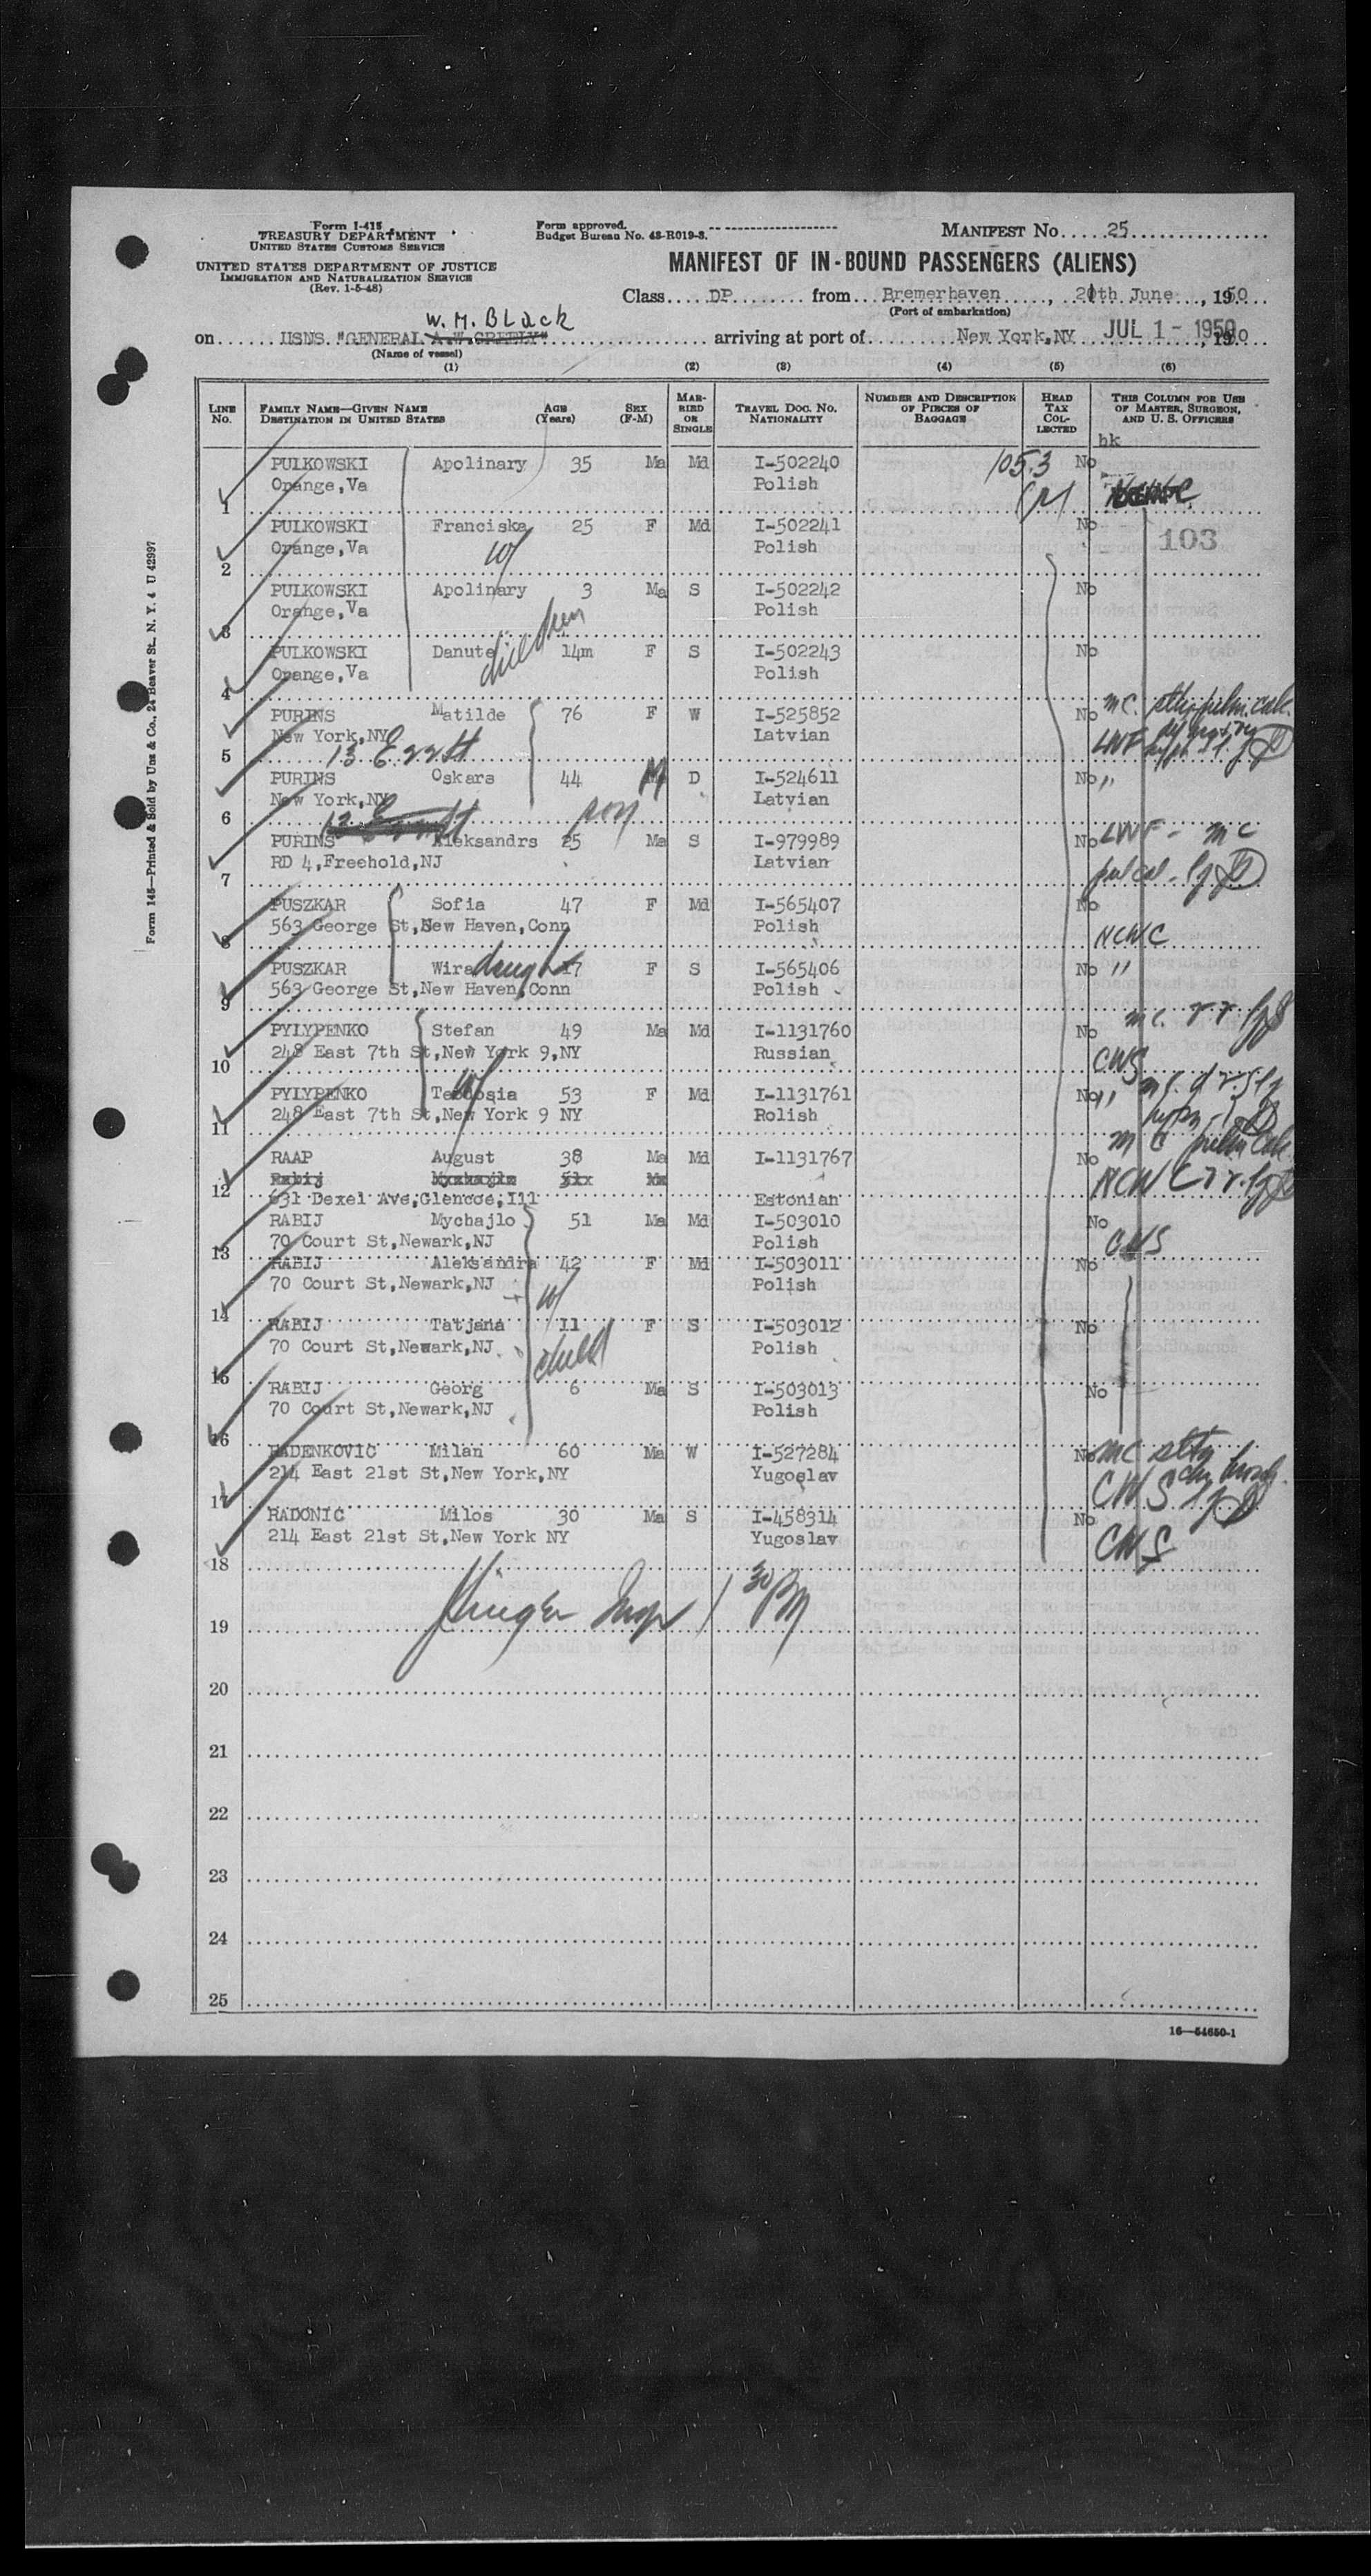 Form I-415
TREASURY DEPARTMENT
UNITED STATES CUSTOMS SERVICE
UNITED STATES DEPARTMENT OF JUSTICE
IMMIGRATION AND NATURALIZATION SERVICE
(Rev. 1-5-48)
Form approved.
Budget Bureau No. 43-R019-3.
MANIFEST No. 25
MANIFEST OF IN-BOUND PASSENGERS (ALIENS)
Class DP from Bremerhaven, 20th June, 1950
(Port of embarkation)
W. M. Black
on USNS "GENERAL A.W. GREELY" arriving at port of New York,NY JUL 1 - 1950, 1950
(Name of vessel)
(1) (2) (3) (4) (5) (6)
LINE No. FAMILY NAME—GIVEN NAME DESTINATION IN UNITED STATES AGE (Years) SEX (F-M) MARRIED OR SINGLE TRAVEL DOC. NO. NATIONALITY NUMBER AND DESCRIPTION OF PIECES OF BAGGAGE HEAD TAX COLLECTED THIS COLUMN FOR USE OF MASTER, SURGEON, AND U. S. OFFICERS
hk
PULKOWSKI Apolinary 35 Ma Md I-502240 105.3 No
Orange,Va Polish
1
PULKOWSKI Franciska 25 F Md I-502241 No
Orange,Va W Polish 103
2
PULKOWSKI Apolinary 3 Ma S I-502242 No
Orange,Va Polish
3
children
PULKOWSKI Danute 14m F S I-502243 No
Orange,Va Polish
4
PURINS Matilde 76 F W I-525852 No mc.
New York,NY Latvian LWF
5 13 E 22 St
PURINS Oskars 44 M D I-524611 No "
New York,NY Latvian
6 son
PURINS Aleksandrs 25 Ma S I-979989 No LWF - mc
RD 4,Freehold,NJ Latvian
7
PUSZKAR Sofia 47 F Md I-565407 No
563 George St,New Haven,Conn Polish NCWC
8
PUSZKAR Wira daught 17 F S I-565406 No "
563 George St,New Haven,Conn Polish
9
PYLYPENKO Stefan 49 Ma Md I-1131760 No mc.
248 East 7th St,New York 9,NY Russian CWS
10
PYLYPENKO Teodosia 53 F Md I-1131761 No "
248 East 7th St,New York 9 NY W Polish
11
RAAP August 38 Ma Md I-1131767 No mc
12 NCWC
631 Dexel Ave,Glencoe,Ill Estonian
RABIJ Mychajlo 51 Ma Md I-503010 No
70 Court St,Newark,NJ Polish CWS
13
RABIJ Aleksandra 42 F Md I-503011 No
70 Court St,Newark,NJ W Polish
14
RABIJ Tatjana 11 F S I-503012 No
70 Court St,Newark,NJ child Polish
15
RABIJ Georg 6 Ma S I-503013 No
70 Court St,Newark,NJ Polish
16
RADENKOVIC Milan 60 Ma W I-527284 No mc
214 East 21st St,New York,NY Yugoslav CWS
17
RADONIC Milos 30 Ma S I-458314 No
214 East 21st St,New York NY Yugoslav CWS
18
1 30 PM
19
20
21
22
23
24
25
16—54650-1
Form 145—Printed & Sold by Unz & Co., 24 Beaver St., N. Y. 4 U 42997